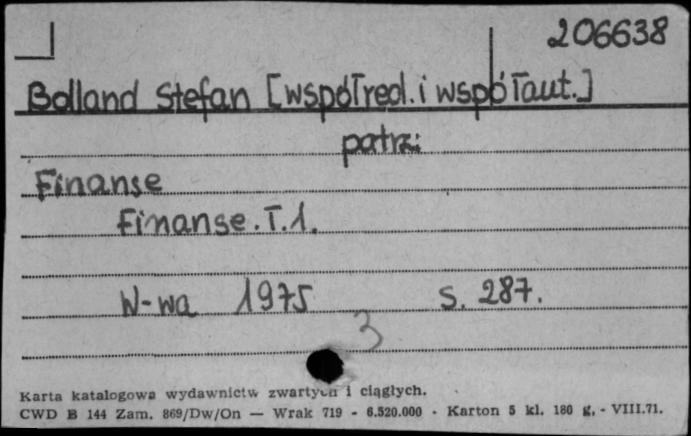 206638
Bolland Stefan [współred. i współaut.]
patrz:
Finanse
Finanse. T. 1.
W-wa 1975 s. 287.
3
Karta katalogowa wydawnictw zwartych i ciągłych.
CWD B 144 Zam. 869/Dw/On — Wrak 719 - 6.520.000 - Karton 5 kl. 180 g. - VIII.71.